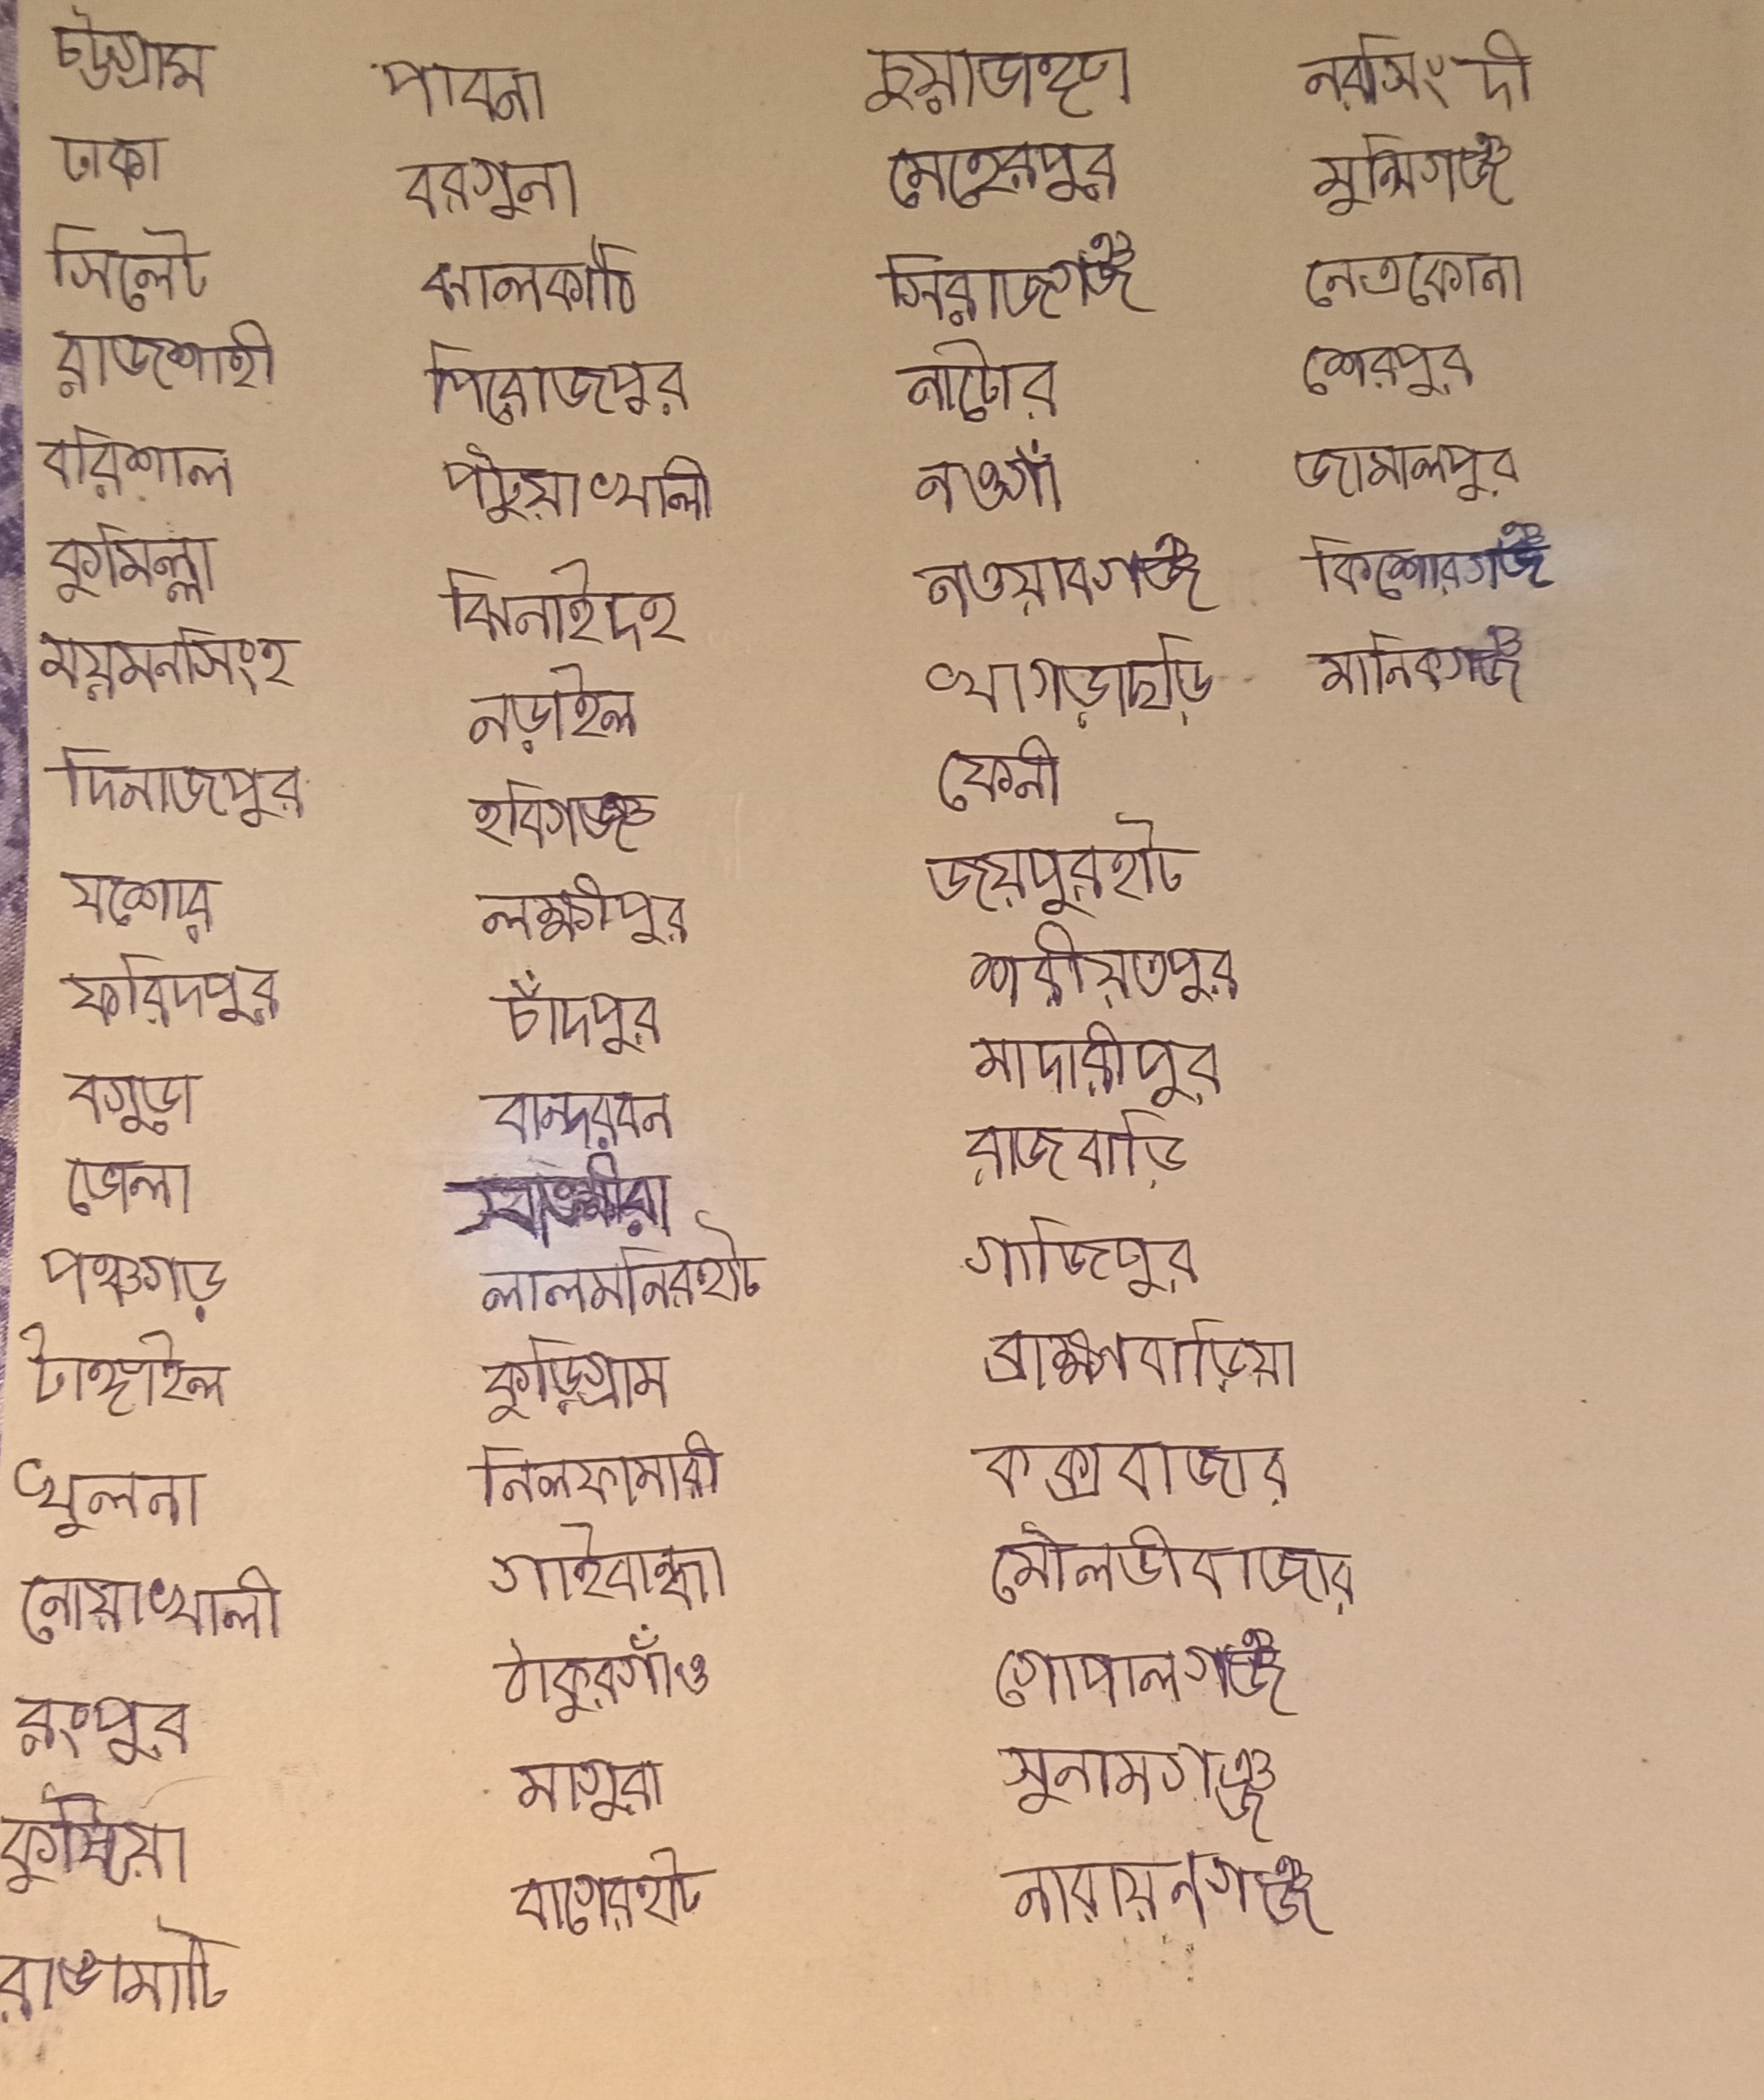 চট্টগ্রাম
ঢাকা
সিলেট
রাজশাহী
বরিশাল
কুমিল্লা
ময়মনসিংহ
দিনাজপুর
যশোর
ফরিদপুর
বগুড়া
ভোলা
পঞ্চগড়
টাঙ্গাইল
খুলনা
নোয়াখালী
রংপুর
কুষ্টিয়া
রাঙামাটি
পাবনা
বরগুনা
ঝালকাঠি
পিরোজপুর
পটুয়াখালী
ঝিনাইদহ
নড়াইল
হবিগঞ্জ
লক্ষীপুর
চাঁদপুর
বান্দরবন
সাতক্ষীরা
লালমনিরহাট
কুড়িগ্রাম
নিলফামারী
গাইবান্ধা
ঠাকুরগাঁও
মাগুরা
বাগেরহাট
চুয়াডাঙ্গা
মেহেরপুর
সিরাজগঞ্জ
নাটোর
নওগাঁ
নওয়াবগঞ্জ
খাগড়াছড়ি
ফেনী
জয়পুরহাট
শরীয়তপুর
মাদারীপুর
রাজবাড়ি
গাজিপুর
ব্রাক্ষনবাড়িয়া
কক্সবাজার
মৌলভীবাজার
গোপালগঞ্জ
সুনামগঞ্জ
নারায়নগঞ্জ
নরসিংদী
মুন্সিগঞ্জ
নেত্রকোনা
শেরপুর
জামালপুর
কিশোরগঞ্জ
মানিকগঞ্জ